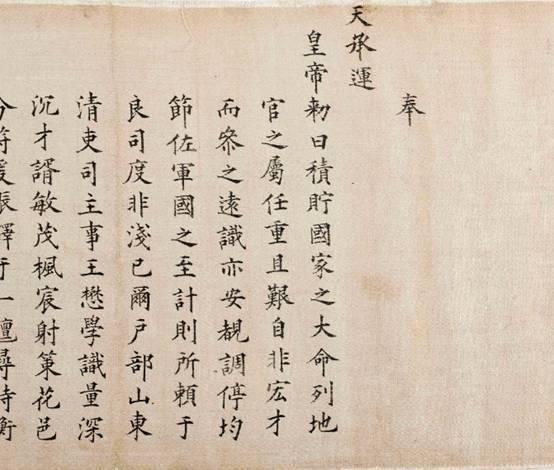 奉
天承運
皇帝勅曰積貯國家之大命列地
官之屬任重且艱自非宏才
而叅之遠識亦安覩調停均
節佐軍國之至計則所頼于
良司度非淺已爾戶部山東
清吏司主事王懋學識量深
沉才諝敏茂楓宸射策花邑
符振鐸于一壇尋衡